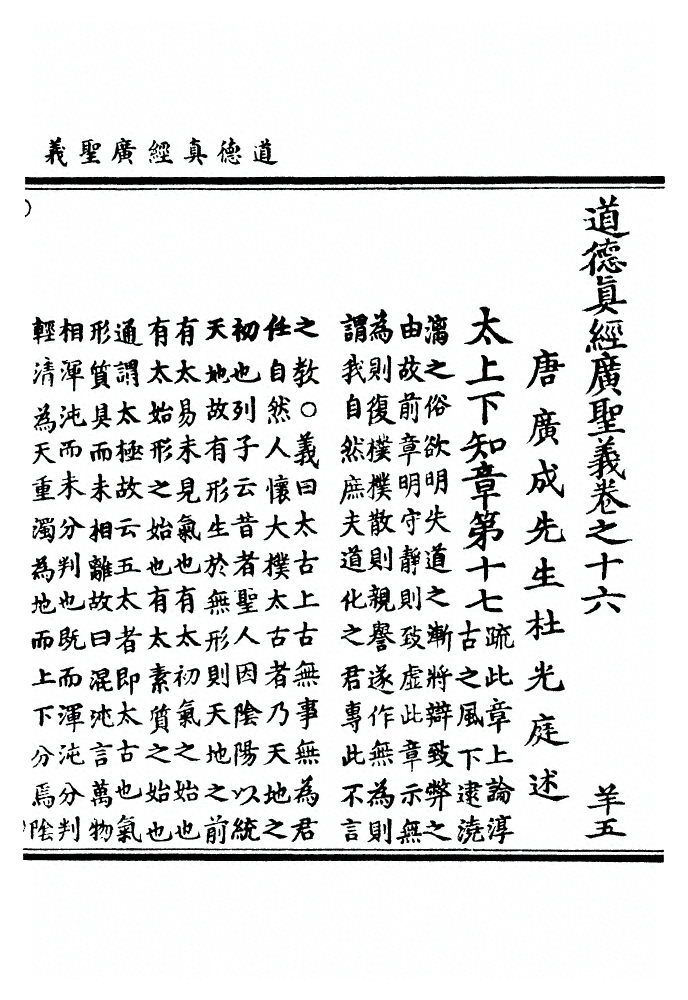 道德真經廣聖義
道德眞經廣聖義卷之十六 羊五
唐廣成先生杜光庭述
太上下知章第十七 疏此章上論淳
古之風下逮澆
漓之俗欲明失道之漸將辯致弊之
由故前章明守靜則致虛此章示無
為則復樸樸散則親譽遂作無為則
謂我自然庶夫道化之君專此不言
之教○義曰太古上古無事無為君
任自然人懷大樸太古者乃天地之
初也列子云昔者聖人因陰陽以統
天地故有形生於無形則天地之前
有太易未見氣也有太初氣之始也
有太始形之始也有太素質之始也
通謂太極故云五太者即太古也氣
形質具而未相離故曰混沌言萬物
相渾沌而未分判也既而渾沌分判
輕清為天重濁為地而上下分焉陰